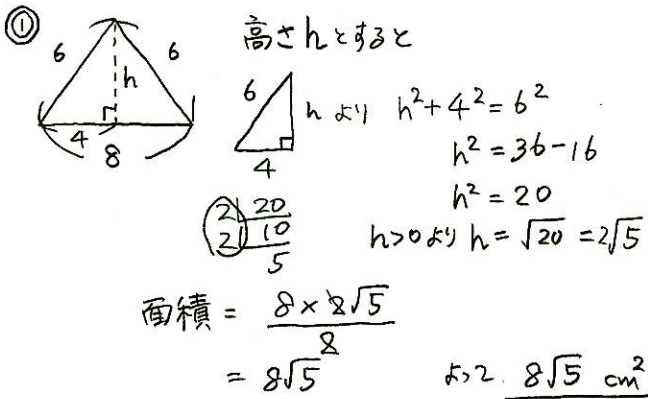 ①
6 6
h
4
8
高さhとすると
6
h より h²+4²=6²
4
h²=36-16
h²=20
2 20
2 10
5
h>0より h=√20=2√5
面積= 8×2√5
2
=8√5
よって 8√5 cm²